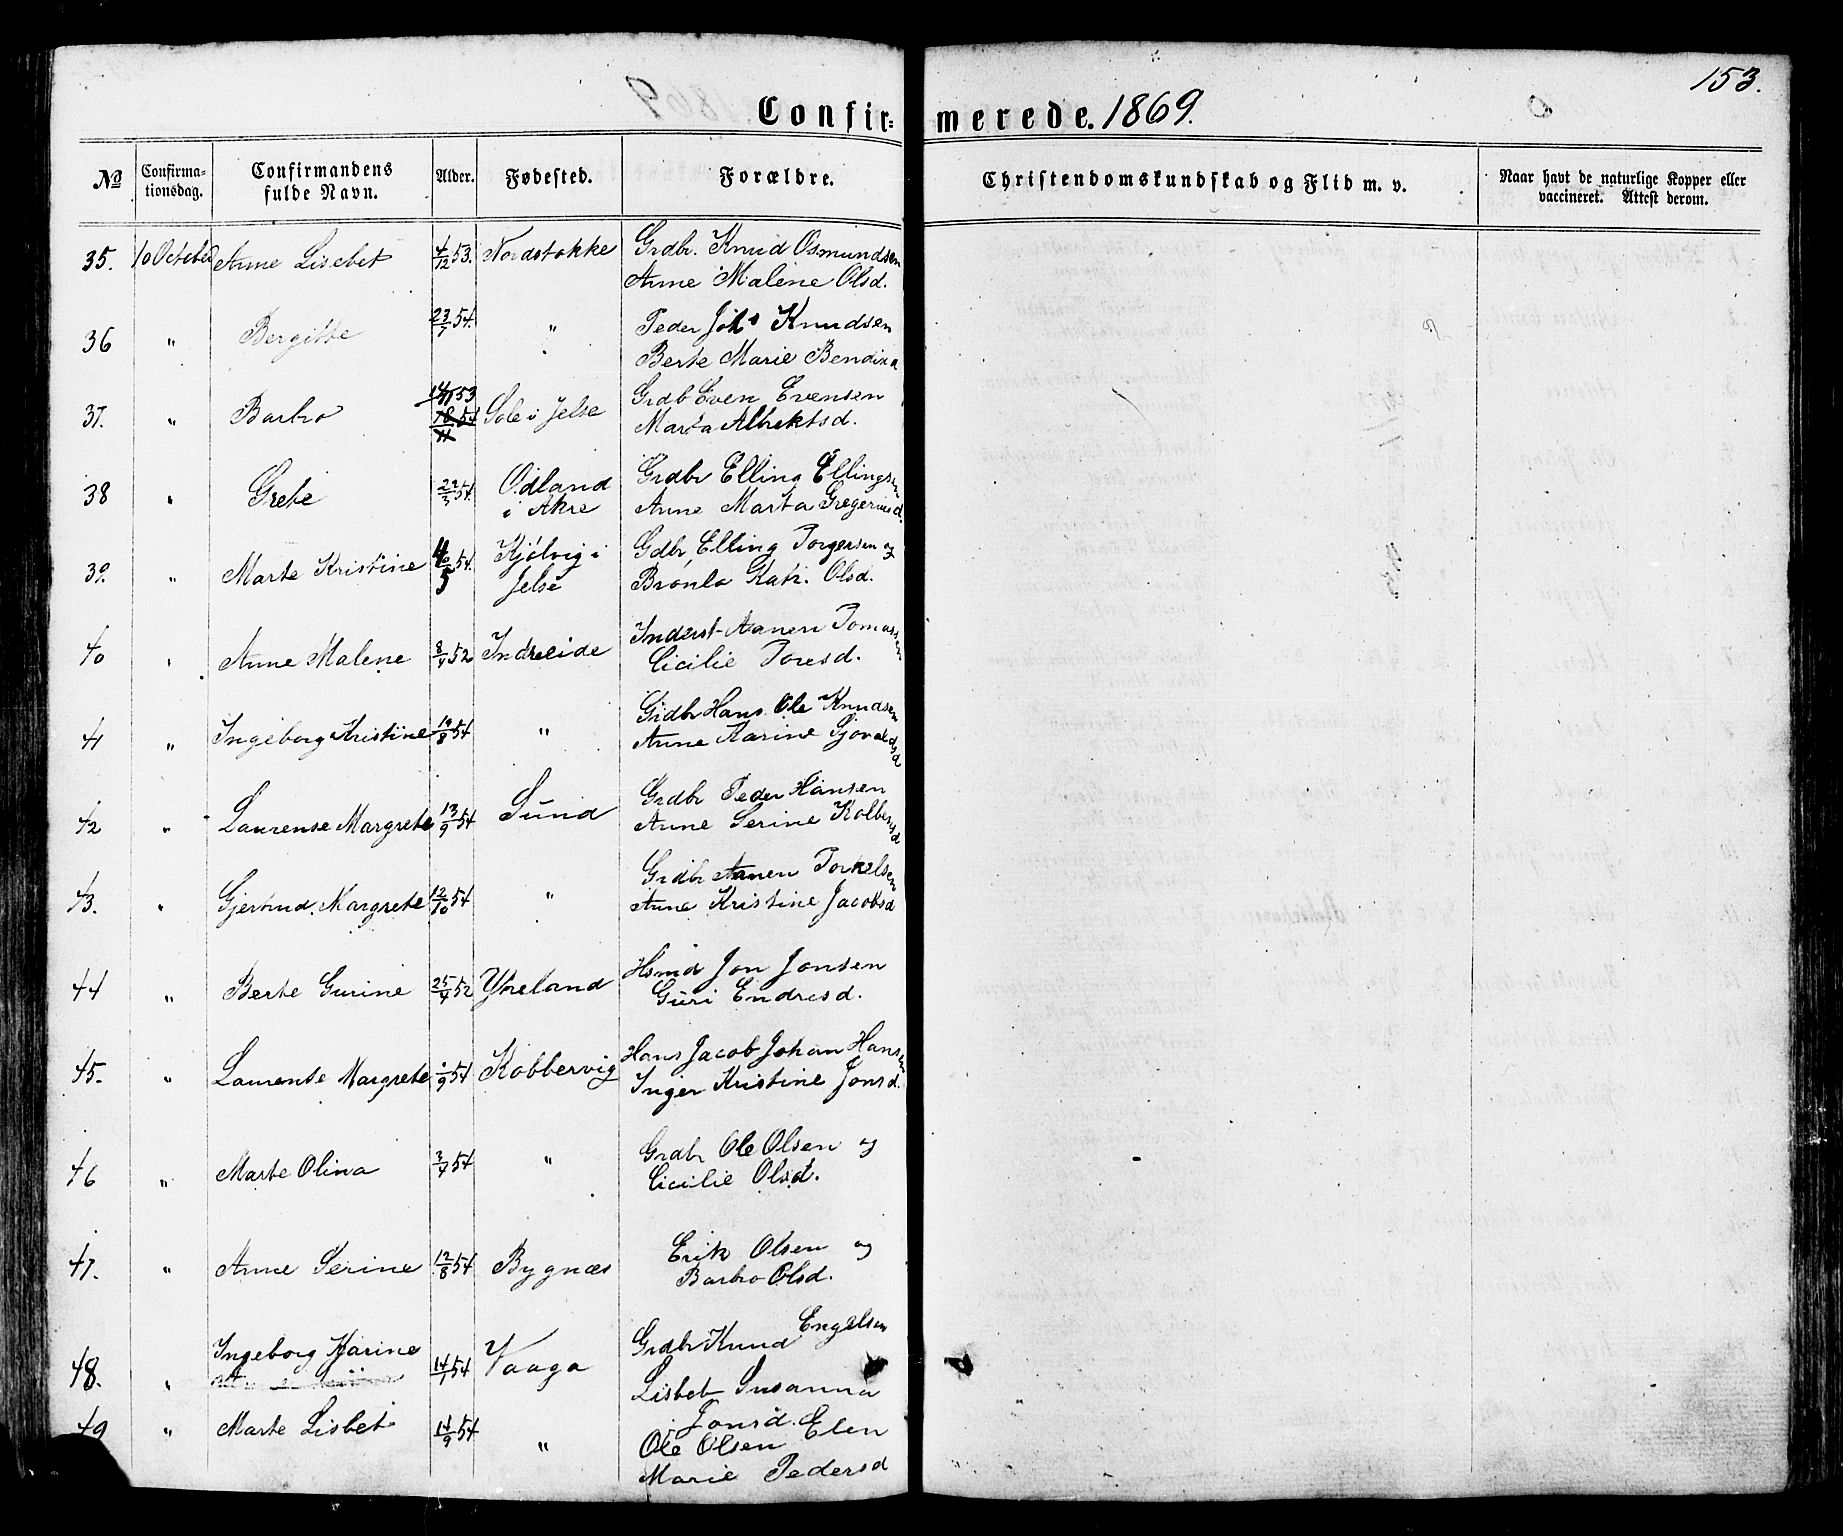 153.
Confir= merede. 1869.
No Confirma-tionsdag. Confirmandens fulde Navn. Alder. Fødested. Forældre. Christendomskundskab og Flid m. v. Naar havt de naturlige Kopper eller vaccineret. Attest derom.
35. 10 October Anne Lisebet 4/12 53. Nordstokke Grdbr. Knud Osmundsen
Anne Malene Olsd.
36 " Bergitte 23/7 54. " Peder Knudsen
Berte Marie Bendina
37. " Barbro 53 Sole i Jelse Grdb Even Evensen
Marta Albrektsd.
38 " Grete 22/3 54. Ødland i Akre Grdbr Elling Ellingsen
Anne Marta Gregeriusd.
39. " Marte Kristine 54. Kjølvig i Jelse Gdbr Elling Torgersen og
Brønla Katr. Olsd.
40 " Anne Malene 8/4 52 Indreeide Inderst Aanen Tomassen
Cicilie Toresd.
41 " Ingeborg Kristine 10/8 54 " Grdbr Hans Ole Knudsen
Anne Karine Sjovaldsd
42 " Laurense Margrete 13/9 54 Sund Grdbr Peder Hansen
Anne Serine Kolbensd
43. " Gjertrud Margrete 12/10 54 " Grdbr Aanen Torkelsen
Anne Kristine Jacobsd
44 " Berte Gurine 25/4 52 Yreland Hsmd Jon Jonsen
Guri Endresd.
45. " Laurense Margrete 54 Kobbervig Hans Jacob Johan Hansen
Inger Kristine Jonsd.
46 " Marte Olina 3/7 54 " Grdbr Ole Olsen og
Cicilie Olsd.
47. " Anne Serine 12/8 54 Bygnæs Erik Olsen og
Barbro Olsd.
48. " Ingeborg Karine 14/7 54 Vaaga Grdbr Knud Engelsen
Lisbet Susanna
Jonsd.
49 " Marte Lisbet 14/9 54 " Ole Olsen Elen
Marie Pedersd